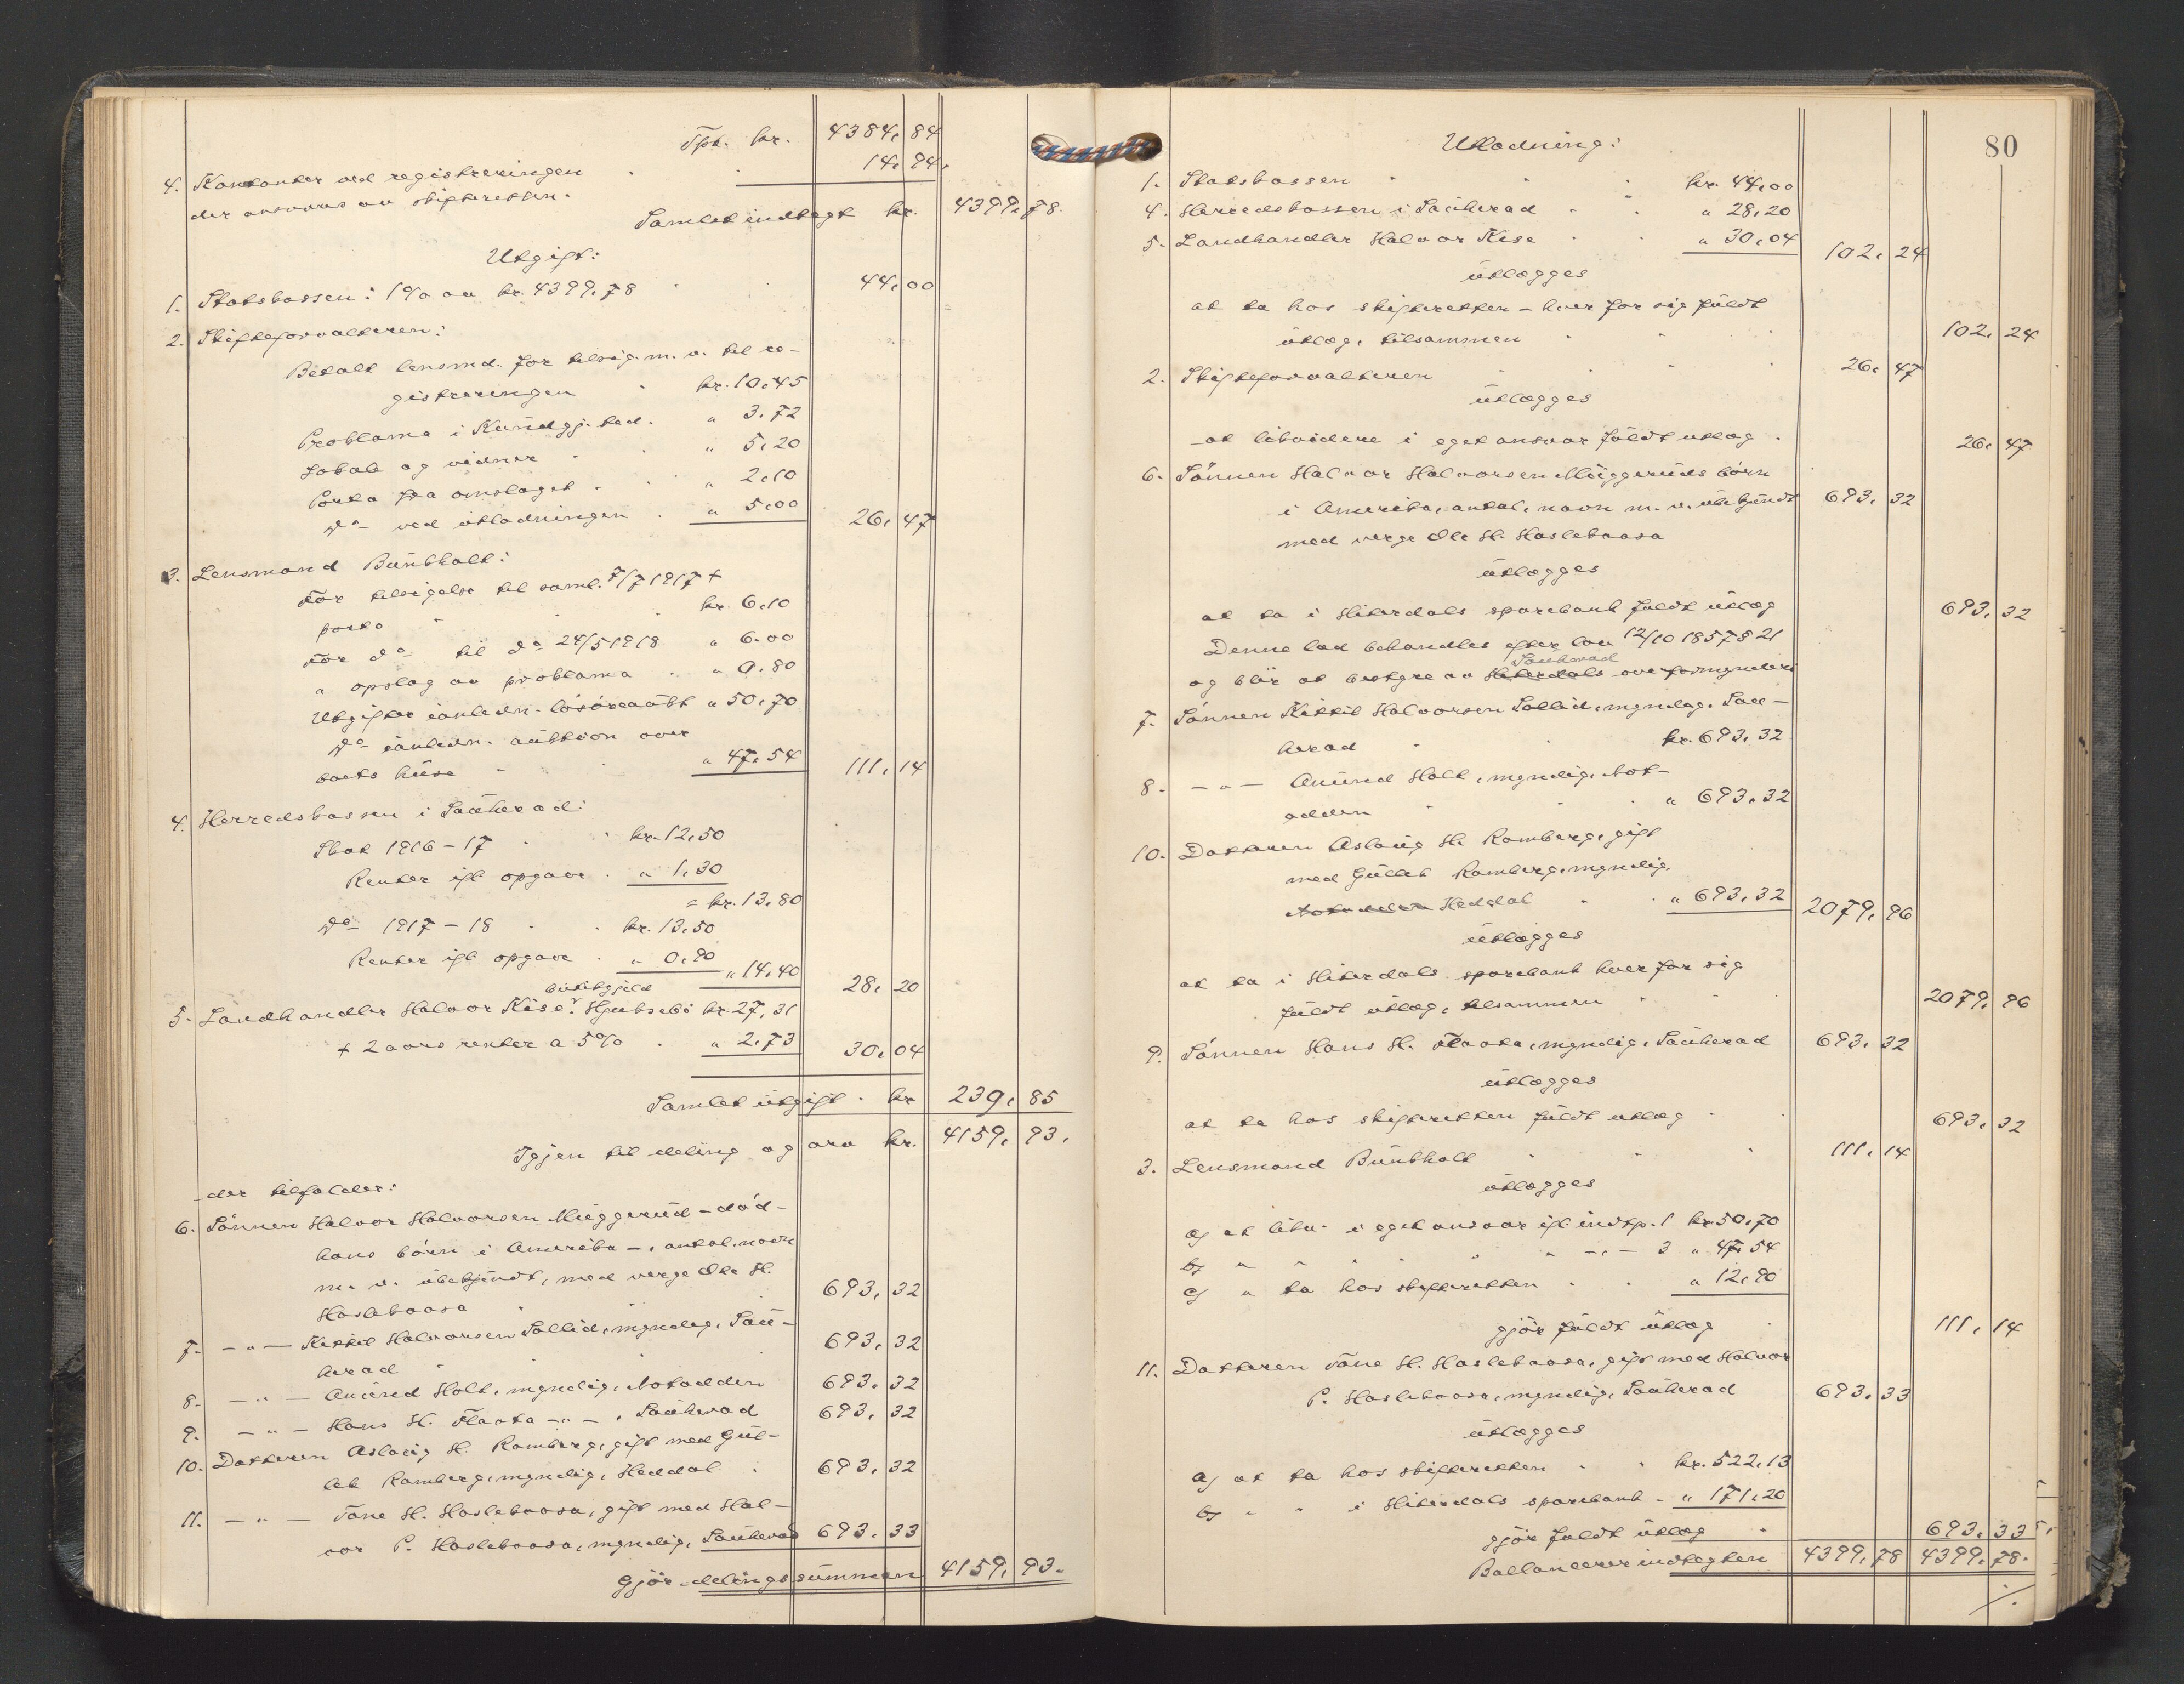 Tpt. kr. 4384,84
4. Kontanter ved registreringen 14,94.
der ansvares av skifteretten.
Samlet indtægt kr. 4399,78.
Utgift:
1. Statskassen: 1% av kr. 4399,78 44,00
2. Skifteforvalteren:
Betalt lensmd. for tilsig. m. v. til re-
gistreringen kr. 10,45
Proklama i Kundgj. tid. " 3.72
Lokale og vidner " 5,20
Porto fra omslaget " 2,10
Do ved utlodningen " 5,00 26,47
3. Lensmand Bunkholt:
For tilsigelse til saml. 7/7 1917 +
porto kr. 6,10
For do til do 24/5 1918 " 6.00
" opslag av proklama " 0.80
Utgifter i anledn. løsøreaukt " 50,70
Do i anledn. auktion over
boets huse " 47,54 111,14
4. Herredskassen i Sauherad:
Skat 1916-17 kr. 12,50
Renter ifl opgave " 1,30
= kr. 13,80
Do 1917-18 kr. 13,50
Renter ifl opgave " 0,90 " 14,40 28,20
butikgjeld
5. Landhandler Halvor Kise, Hjuksebø kr. 27,31
+ 2 aars renter a 5% " 2,73 30,04
Samlet utgift kr 239,85
Igjen til deling og arv kr. 4159,93.
der tilfalder:
6. Sønnen Halvor Halvorsen Muggerud - død -
hans børn i Amerika -, antal, navn
m. v. ubekjendt, med verge Ole H.
Haslekaasa 693,32
7. - " - Kittil Halvorsen Sollid, myndig, Sau-
herad 693,32
8. - " - Amund Holt, myndig, Notodden 693,32
9. - " - Hans H. Flaata - " -, Sauherad 693,32
10. Datteren Aslaug H. Ramberg, gift med Gul-
lek Ramberg, myndig, Heddal 693,32
11. - " - Tone H. Haslekaasa, gift med Hal-
vor P. Haslekaasa, myndig, Sauherad 693,33
Gjør delingssummen 4159,93.
80
Utlodning:
1. Statskassen kr. 44,00
4. Herredskassen i Sauherad " 28,20
5. Landhandler Halvor Kise " 30,04 102,24
utlægges
at ta hos skifteretten - hver for sig fuldt
utlæg, tilsammen 102,24
2. Skifteforvalteren 26,47
utlægges
at likvidere i eget ansvar fuldt utlæg 26,47
6. Sønnen Halvor Halvorsen Muggeruds børn
i Amerika, antal, navn m. v. ubekjendt 693,32
med verge Ole H. Haslekaasa
utlægges
at ta i Hiterdals sparebank fuldt utlæg 693,32
Denne lod behandles efter lov 12/10 1857 § 21
Sauherad
og blir at bestyre av Hiterdals overformynderi
7. Sønnen Kittil Halvorsen Sollid, myndig, Sau-
herad kr. 693,32
8. - " - Amund Holt, myndig, Not-
odden " 693,32
10. Datteren Aslaug H. Ramberg, gift
med Gullek Ramberg, myndig,
Notodden Heddal " 693,32 2079,96
utlægges
at ta i Hiterdals sparebank hver for sig
fuldt utlæg, tilsammen 2079,96
9. Sønnen Hans H. Flaata, myndig, Sauherad 693,32
utlægges
at ta hos skifteretten fuldt utlæg 693,32
3. Lensmand Bunkholt 111,14
utlægges
a) at likv. i eget ansvar ifl. indtp. 1 kr. 50,70
b) " " " " " - " - 3 " 47,54
c) " ta hos skifteretten " 12,90
gjør fuldt utlæg 111,14
11. Datteren Tone H. Haslekaasa, gift med Halvor
P. Haslekaasa, myndig, Sauherad 693,33
utlægges
a) at ta hos skifteretten kr. 522,13
b) " " i Hiterdals sparebank " 171,20
gjør fuldt utlæg 693,33
Ballancerer indtægten 4399,78 4399,78.